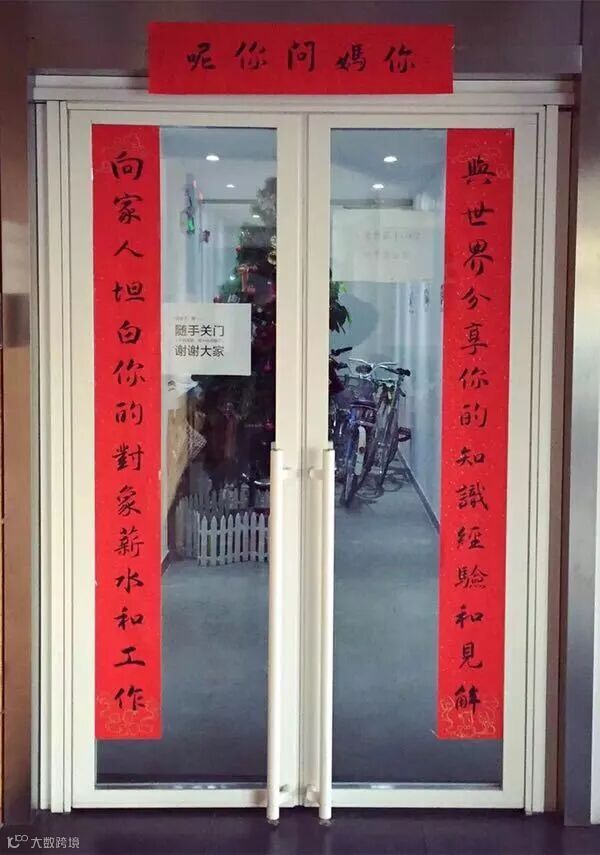 你媽问你呢
與世界分享你的知識經驗和見解
向家人坦白你的對象薪水和工作
随手关门
谢谢大家
大数跨境